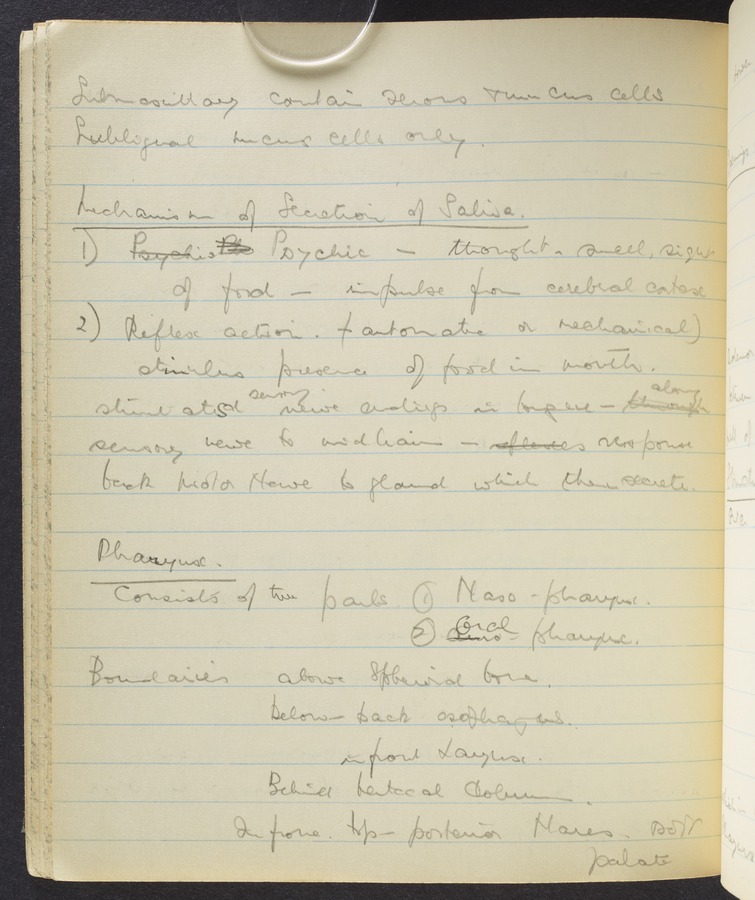 Submaxillary contain serous + mucus cells
Sublingual mucus cells only.
Mechanism of Secretion of Saliva.
1) Psychic Psychic – thought – smell, sight
of food – impulse from cerebral cortex
2) Reflex action. (automatic or mechanical)
stimulus presence of food in mouth.
stimulated sensory nerve endings in tongue – through along
sensory nerve to midbrain – response
back Motor Nerve to gland which then secrete.
Pharynx.
Consists of two parts ① Naso-pharynx.
② Oral pharynx.
Boundaries above Sphenoid bone.
Below – back oesophagus.
in front Larynx.
Behind Vertical Column.
In front. top – posterior Nares. Soft
palate